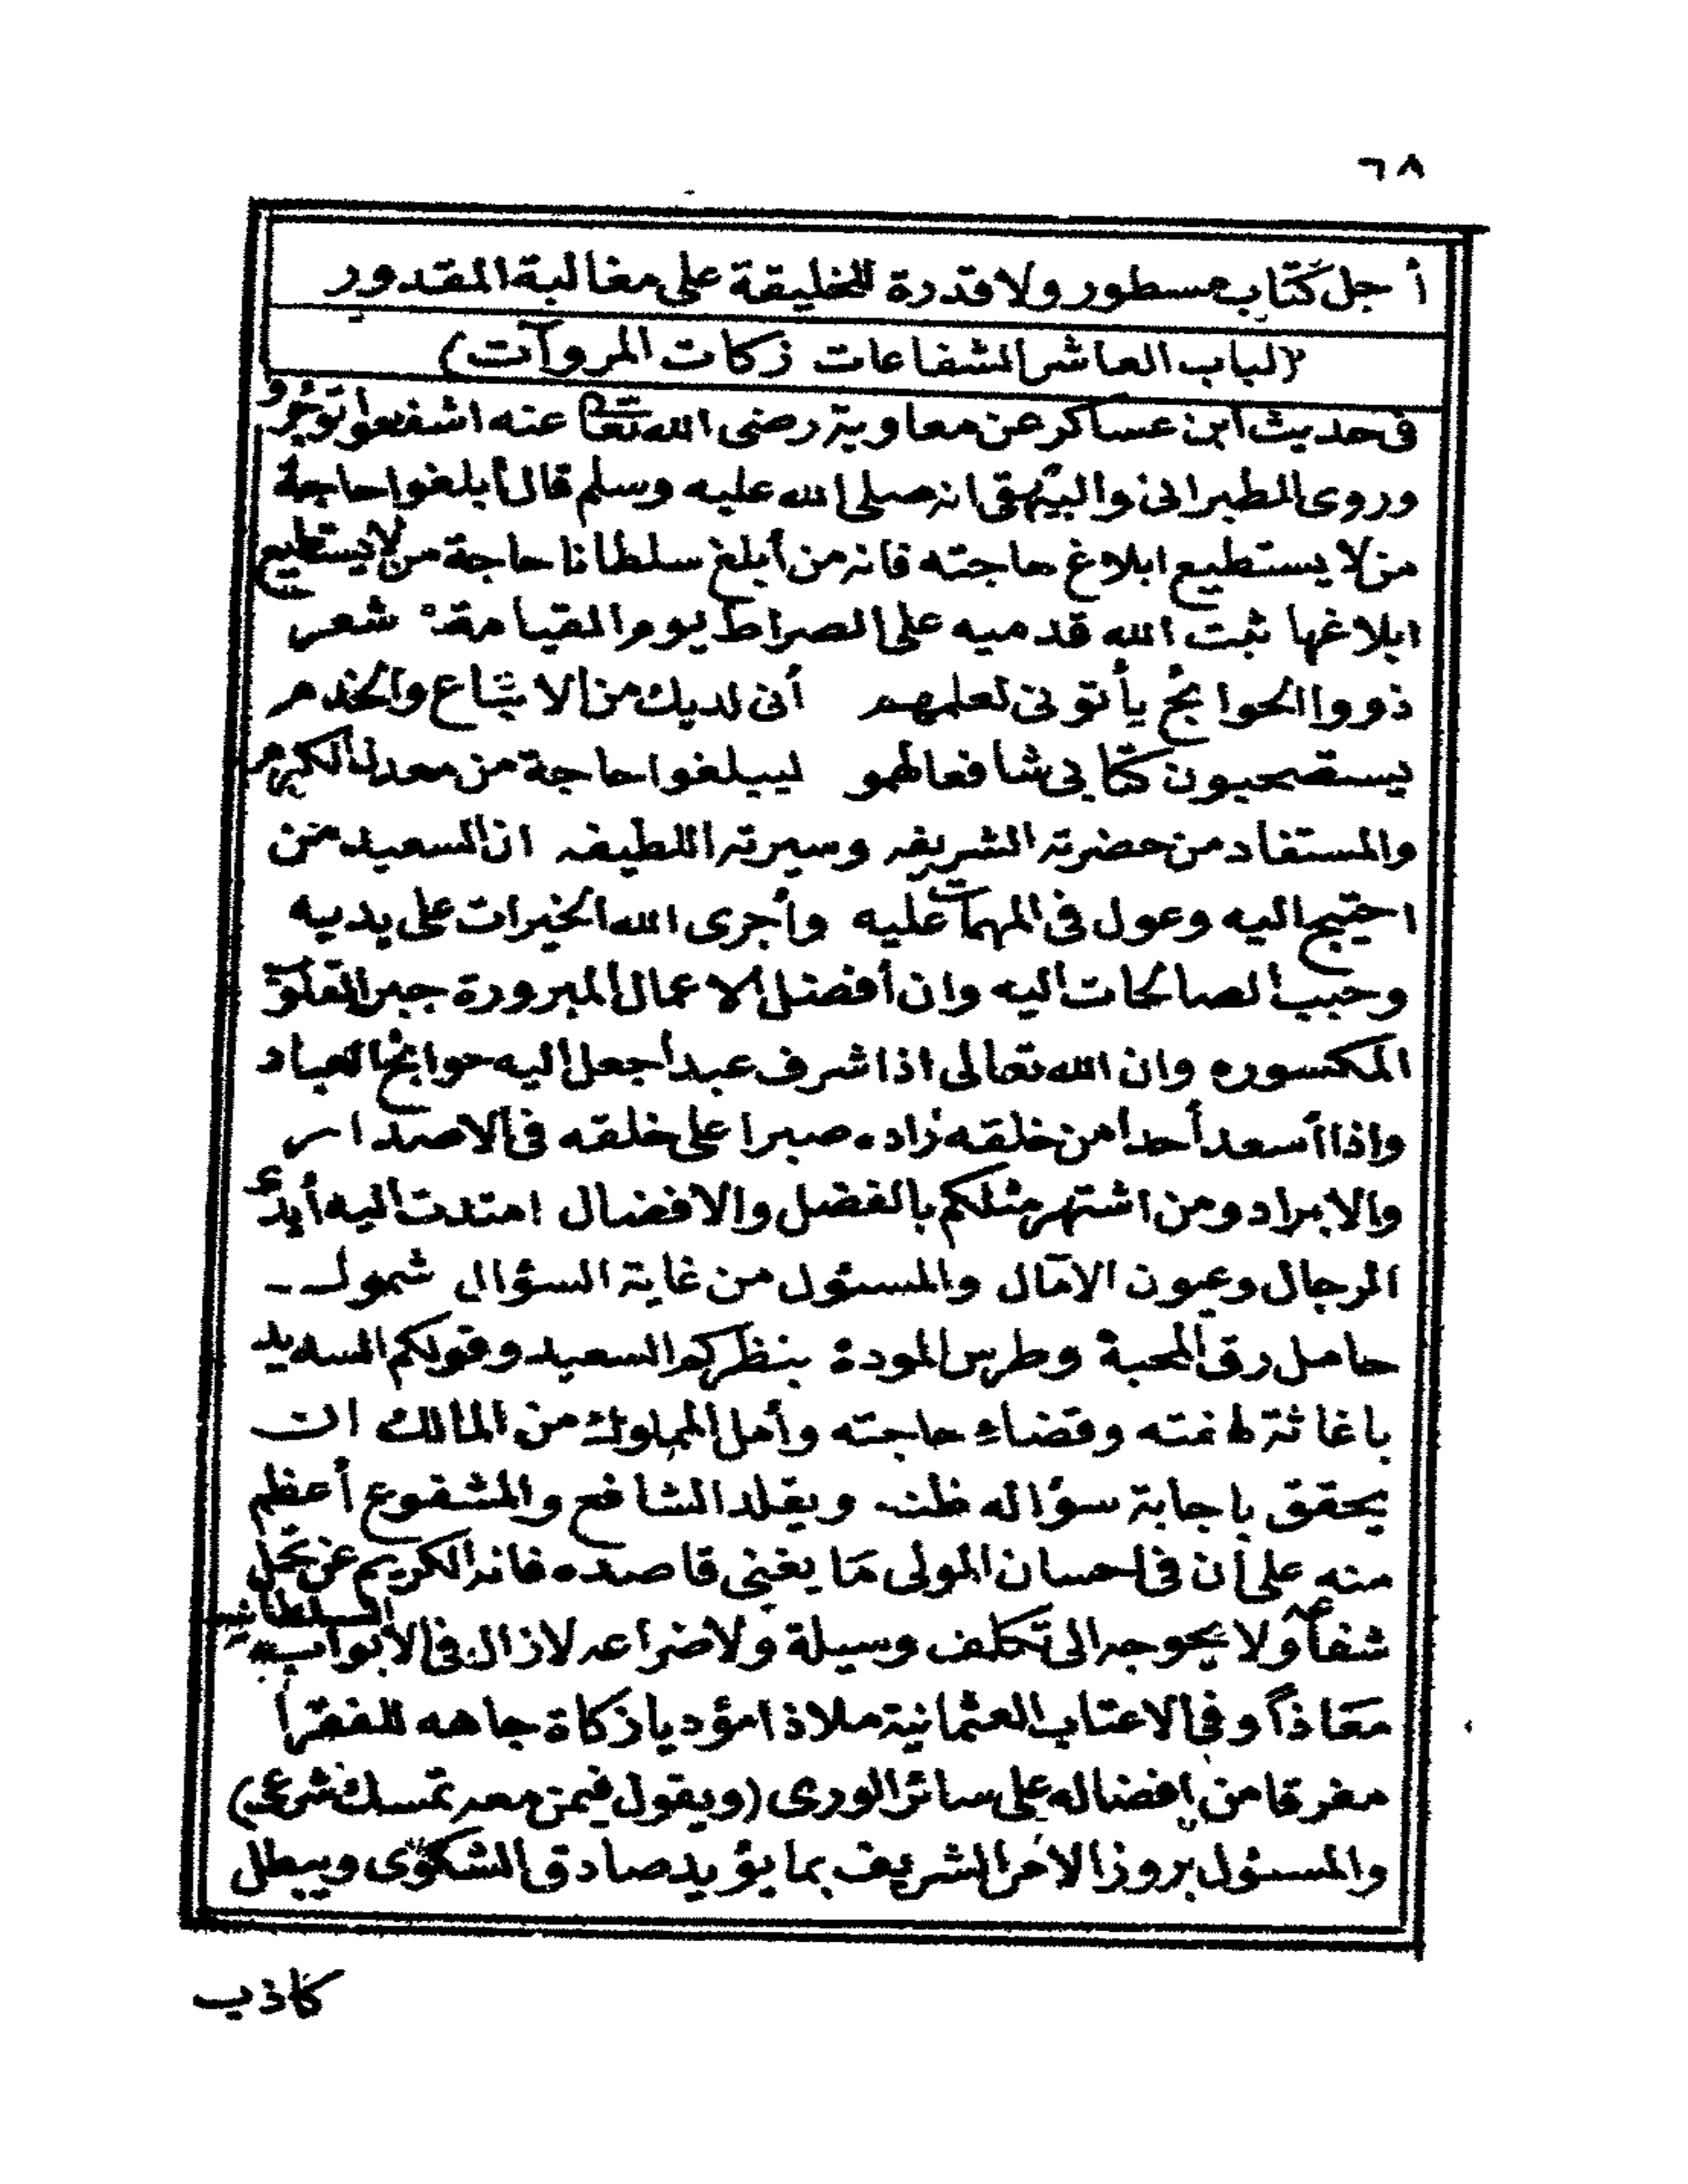 ٦٨
أجل كتاب مسطور ولا قدرة للخليقة على مغالبة المقدور
(الباب العاشر الشفاعات زكات المروآت)
فى حديث ابن عساكر عن معاوية رضى الله تعا عنه اشفعوا تؤجروا
وروى الطبرانى والبيهقى انه صلى الله عليه وسلم قال أبلغوا حاجة
من لا يستطيع ابلاغ حاجته فانه من أبلغ سلطانا حاجة من لا يستطيع
ابلاغها ثبت الله قدميه على الصراط يوم القيامة شعر
ذووا الحوائج يأتونى لعلمهم أنى لديك من الاتباع والخدم
يستصحبون كتابى شافعا لهمو ليبلغوا حاجة من معدن الكرم
والمستفاد من حضرته الشريفه وسيرته اللطيفه ان السعيد من
احتيج اليه وعول فى المهمات عليه وأجرى الله الخيرات على يديه
وحبب الصالحات اليه وان أفضل الاعمال المبرورة جبر القلوب
المكسوره وان الله تعالى اذا شرف عبدا جعل اليه حوائج العباد
واذا أسعد أحدا من خلقه زاده صبرا على خلقه فى الاصدار
والايراد ومن اشتهر مثلكم بالفضل والافضال امتدت اليه أيدى
الرجال وعيون الآمال والمسئول من غاية السؤال شمول
حامل رق المحبة وطرس المودة بنظركم السعيد وقولكم السديد
باغاثة لهفته وقضاء حاجته وأمل المملوك من المالك ان
يحقق باجابة سؤاله ظنه ويقلد الشافع والمشفوع أعظم
منه على أن فى احسان المولى ما يغنى قاصده فانه الكريم عن تحمل
شفاعة ولا يحوجه الى تكلف وسيلة ولا ضراعه لا زال فى الابواب السلطانيه
معاذا وفى الاعتاب العثمانية ملاذا مؤديا زكاة جاهه للفقرا
مفرقا من افضاله على سائر الورى (ويقول فيمن معه تمسك شرعى)
والمسئول بروز الامر الشريف بما يؤيد صادق الشكوى ويبطل
كاذب